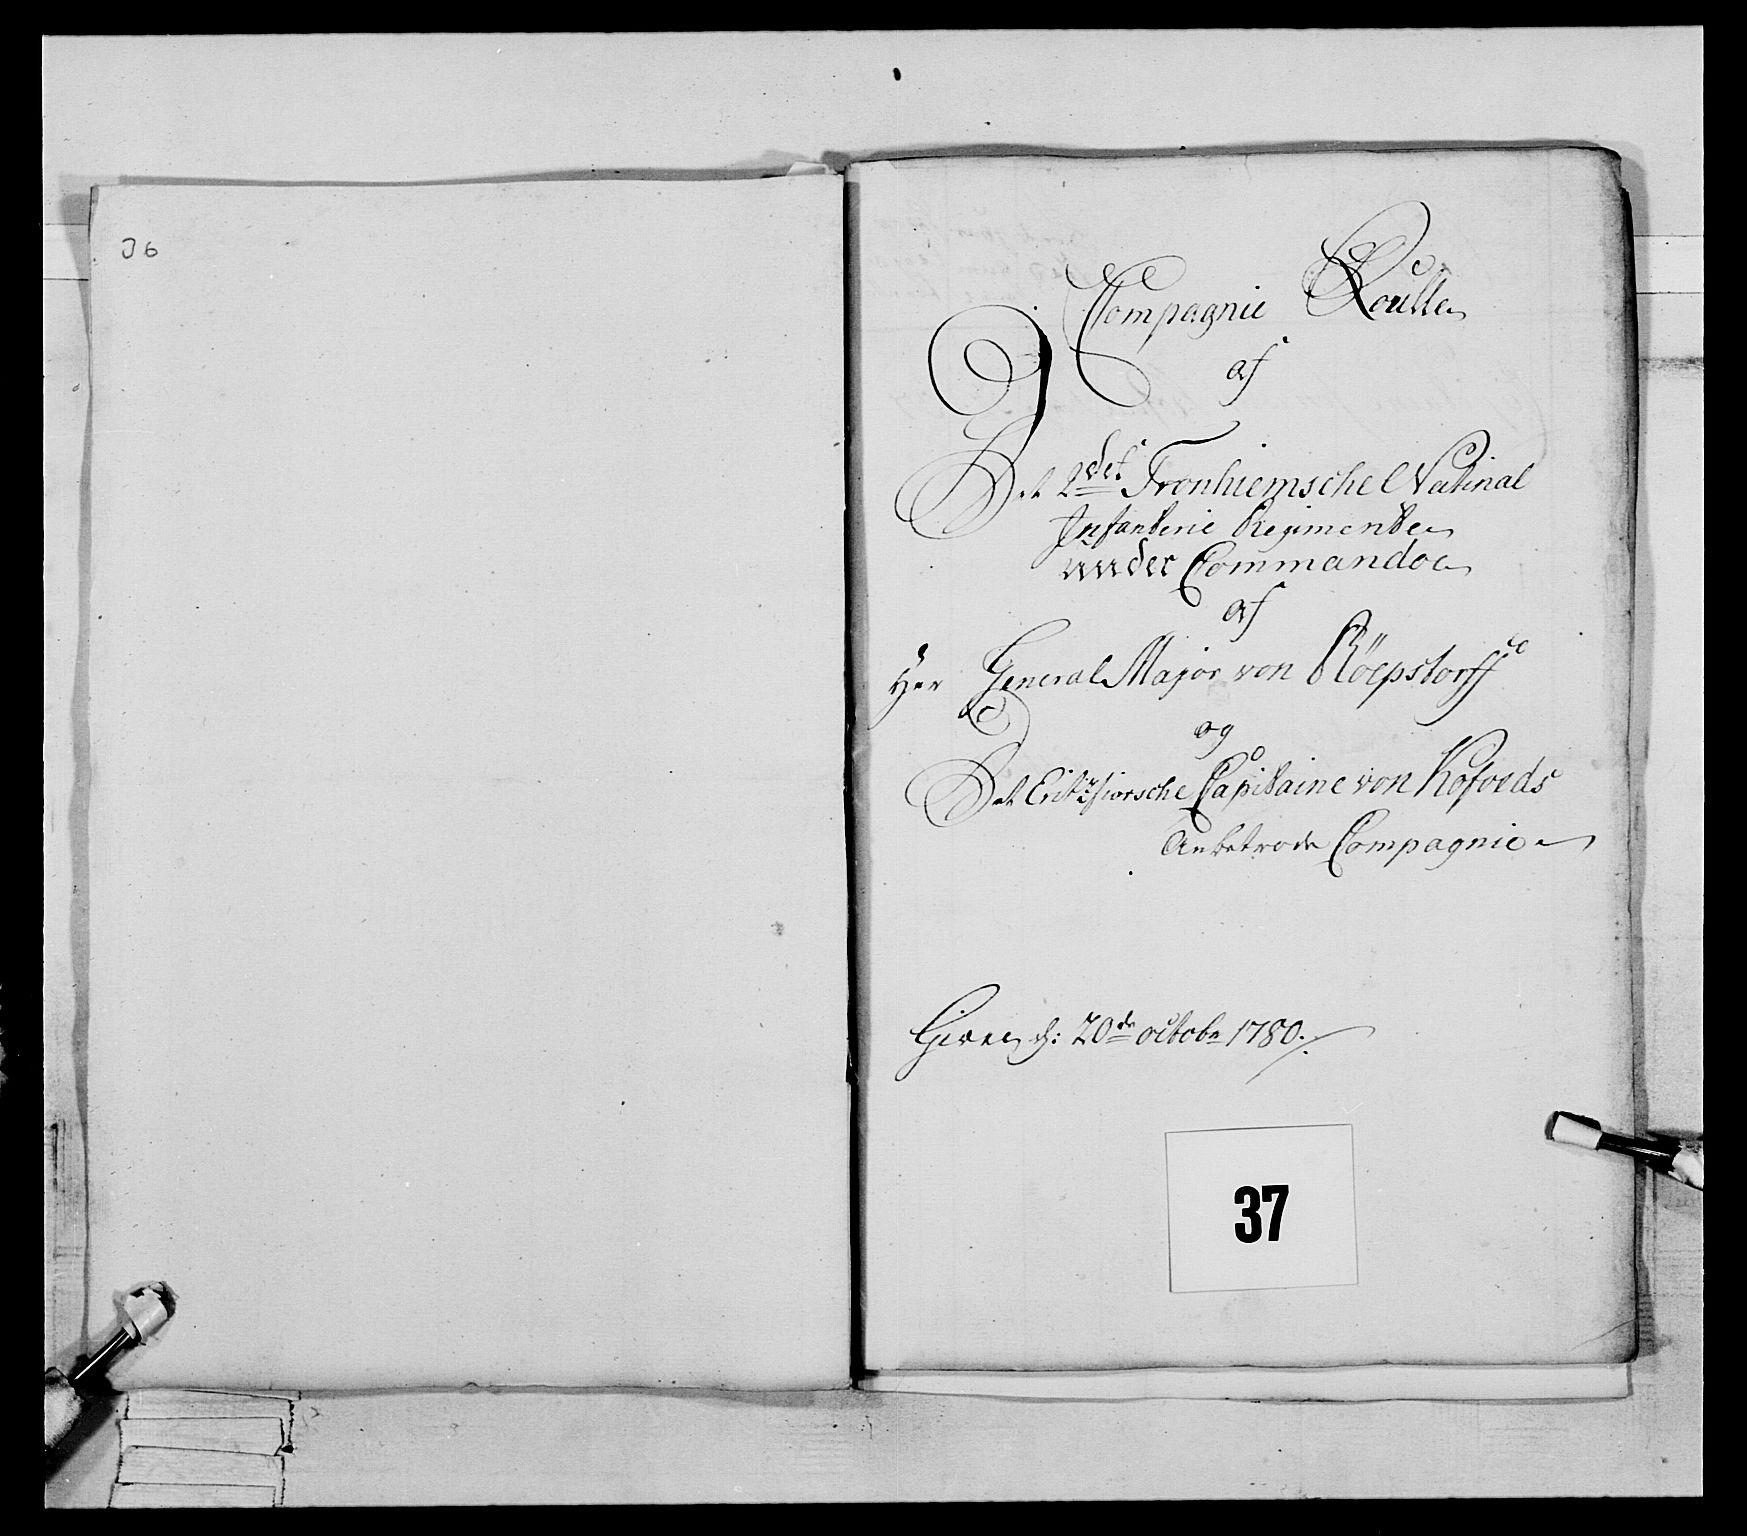 36
Compagnie Roulle
af
Det 2det Tronhiemsche Natinal
Infanterie Regimente
under Commandoe
af
Her General Major von Röepstorff
og
Det Capitaine von Kofoeds
Anbetrode Compagnie
Giwen d: 20de octobr 1780.
37